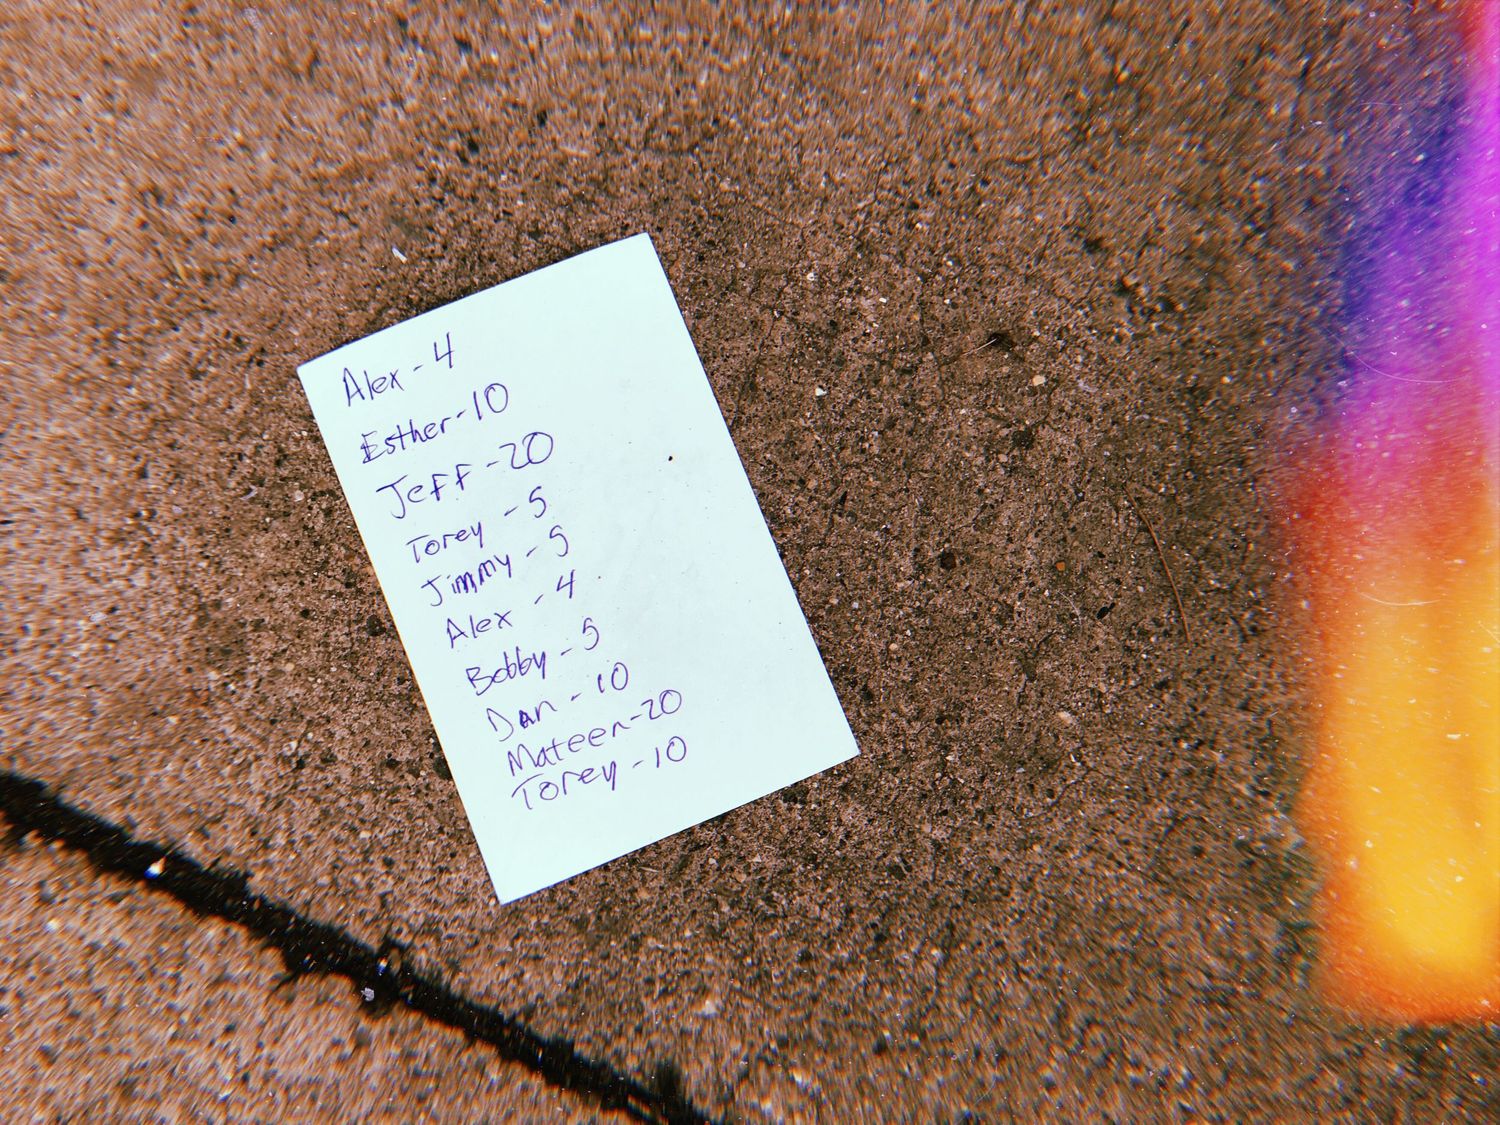 Alex - 4
Esther - 10
Jeff - 20
Torey - 5
Jimmy - 5
Alex - 4
Bobby - 5
Dan - 10
Mateen - 20
Torey - 10